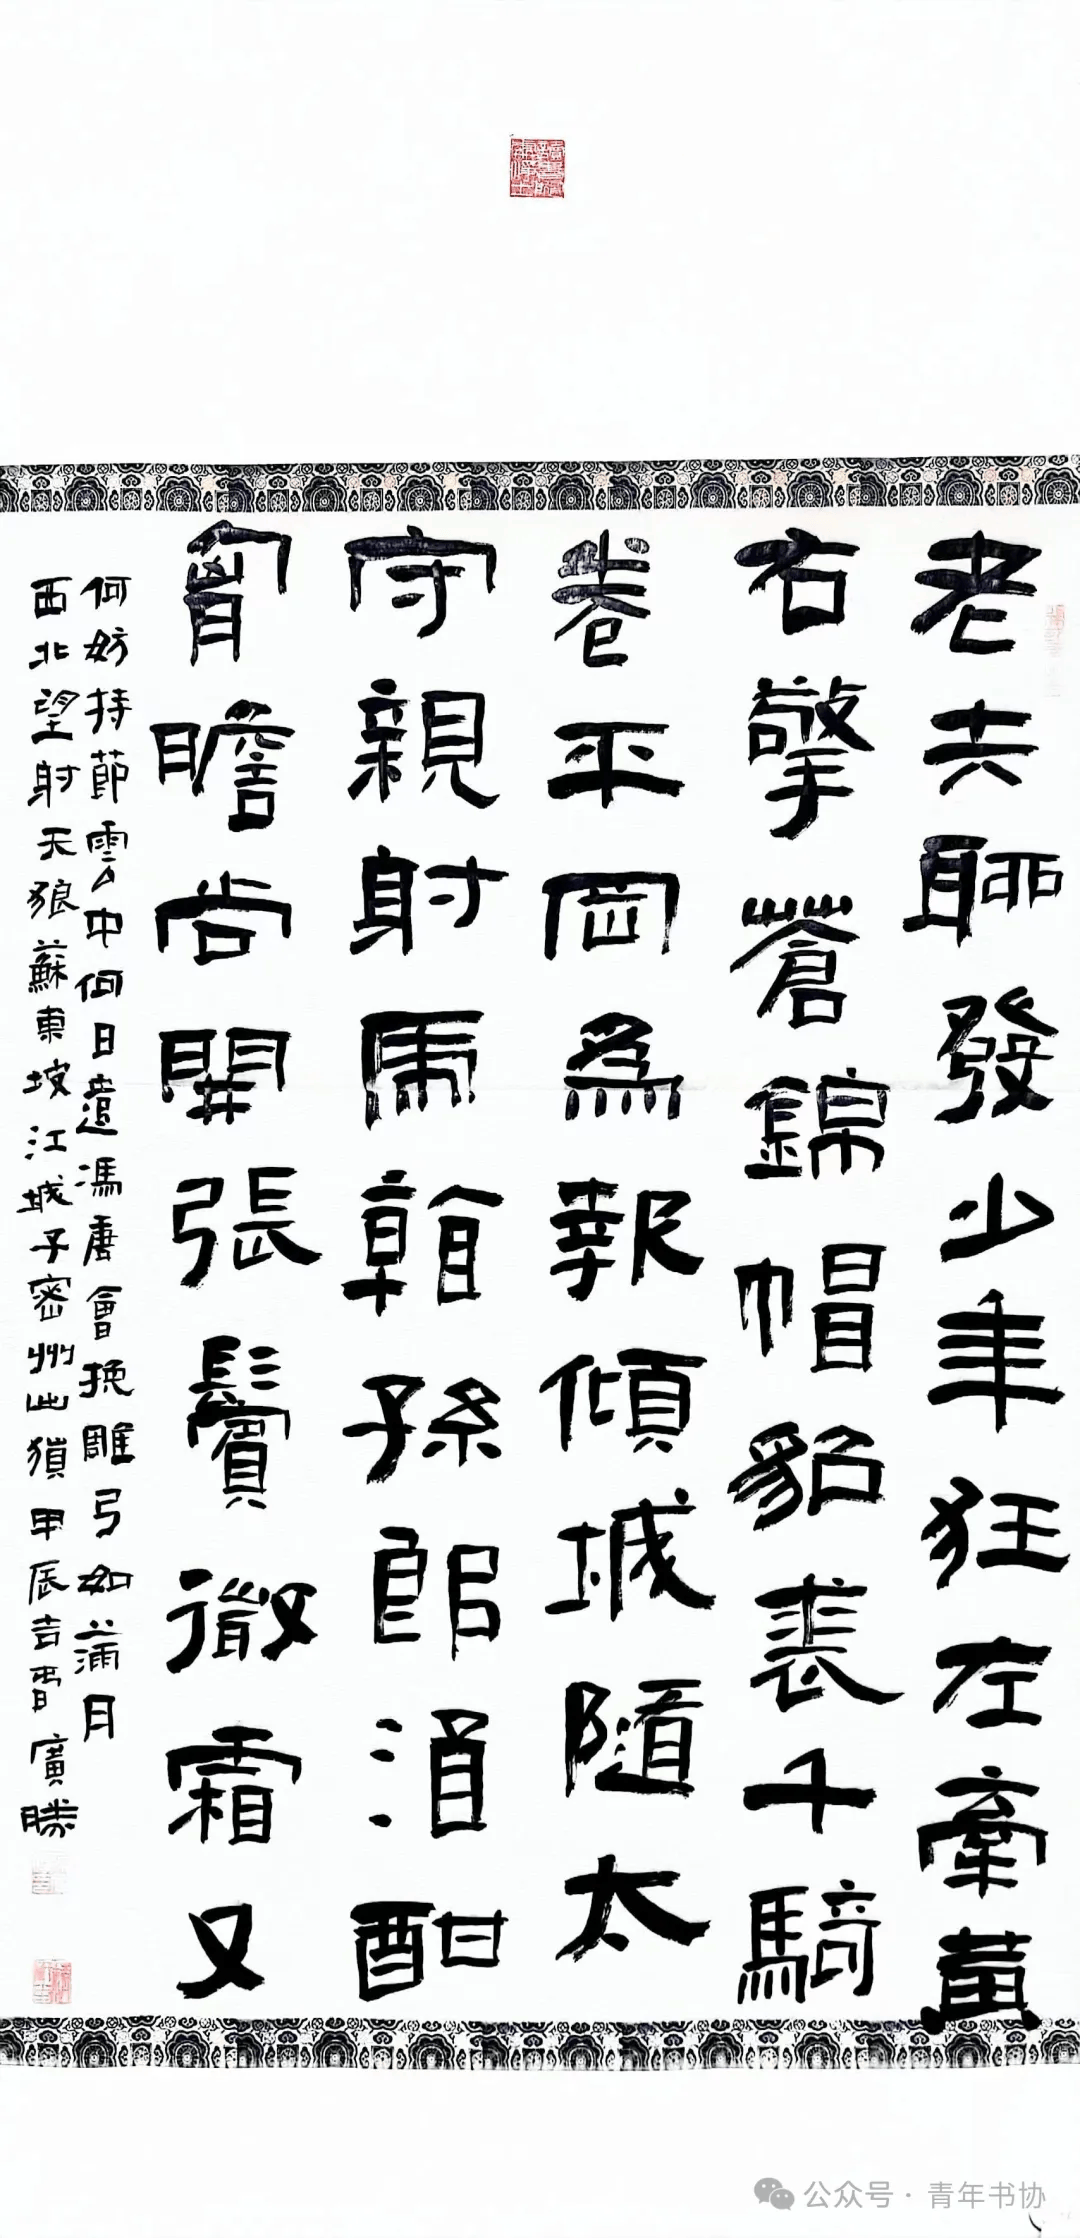 老夫聊發少年狂左牽黃
右擎蒼錦帽貂裘千騎
卷平岡為報傾城隨太
守親射虎看孫郎酒酣
胷膽尚開張鬢微霜又
何妨持節雲中何日遣馮唐會挽雕弓如滿月
西北望射天狼蘇東坡江城子密州出獵甲辰吉旾廣勝
公众号·青年书协